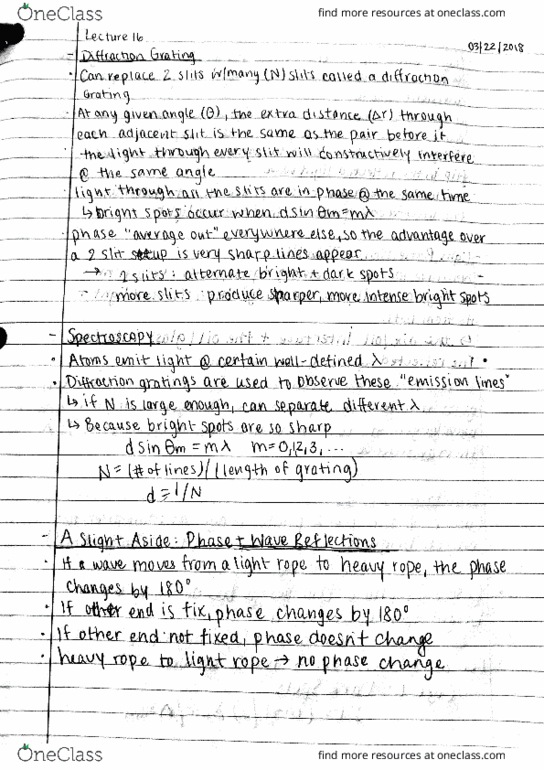 OneClass
find more resources at oneclass.com
Lecture 16
03/22/2018
- Diffraction Grating
· Can replace 2 slits w/many (N) slits called a diffraction
Grating
· At any given angle (θ), the extra distance (Δr) through
each adjacent slit is the same as the pair before it
the light through every slit will constructively interfere
@ the same angle
light through all the slits are in phase @ the same time
↳ bright spots occur when dsinθm=mλ
phase "average out" everywhere else, so the advantage over
a 2 slit setup is very sharp lines appear
→ 2 slits: alternate bright + dark spots
more slits produce sharper, more intense bright spots
- Spectroscopy
· Atoms emit light @ certain well-defined λ
· Diffraction gratings are used to observe these "emission lines"
↳ if N is large enough, can separate different λ
↳ Because bright spots are so sharp
dsinθm = mλ m=0,1,2,3, ...
N = (# of lines)/(length of grating)
d = 1/N
- A Slight Aside: Phase + Wave Reflections
· If a wave moves from a light rope to heavy rope, the phase
changes by 180°
· If other end is fix, phase changes by 180°
· If other end not fixed, phase doesn't change
· heavy rope to light rope → no phase change
OneClass
find more resources at oneclass.com